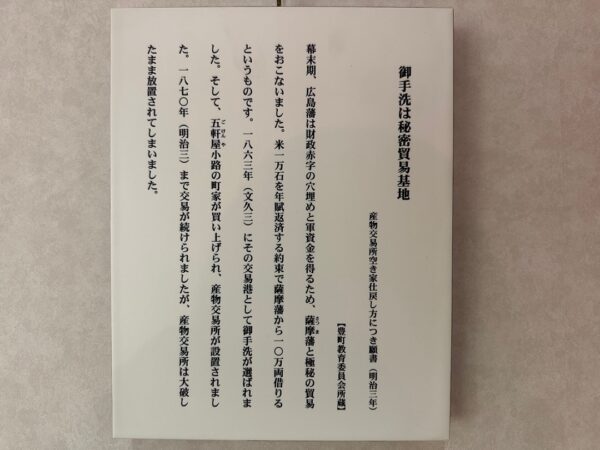 御手洗は秘密貿易基地
産物交易所空き家仕戻し方につき願書（明治三年）
【豊町教育委員会所蔵】
幕末期、広島藩は財政赤字の穴埋めと軍資金を得るため、薩摩藩と極秘の貿易
をおこないました。米一万石を年賦返済する約束で薩摩藩から一〇万両借りる
というものです。一八六三年（文久三）にその交易港として御手洗が選ばれま
した。そして、五軒屋小路の町家が買い上げられ、産物交易所が設置されまし
た。一八七〇年（明治三）まで交易が続けられましたが、産物交易所は大破し
たまま放置されてしまいました。